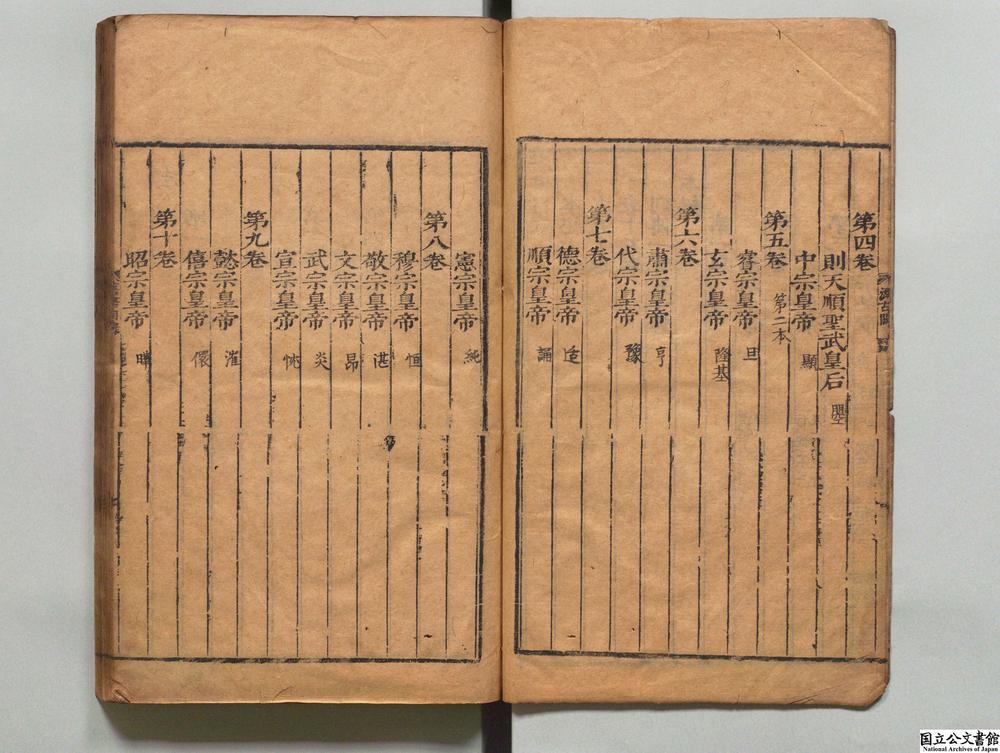 第四卷
則天順聖武皇后 曌
中宗皇帝 顯
第五卷 第二本
睿宗皇帝 旦
玄宗皇帝 隆基
第六卷
肅宗皇帝 亨
代宗皇帝 豫
第七卷
德宗皇帝 适
順宗皇帝 誦
憲宗皇帝 純
第八卷
穆宗皇帝 恒
敬宗皇帝 湛
文宗皇帝 昂
武宗皇帝 炎
宣宗皇帝 忱
第九卷
懿宗皇帝 漼
僖宗皇帝 儇
第十卷
昭宗皇帝 曄
国立公文書館
National Archives of Japan